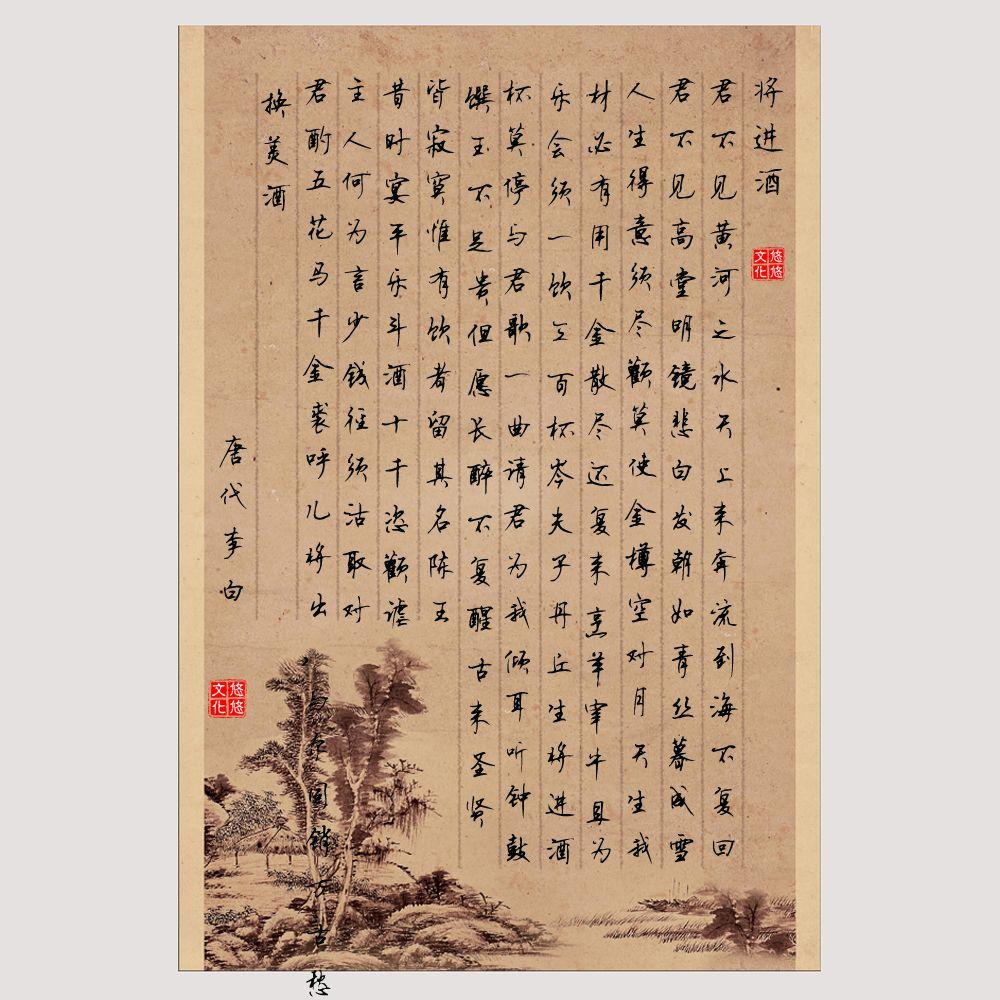 将进酒
悠悠文化
君不见黄河之水天上来奔流到海不复回
君不见高堂明镜悲白发朝如青丝暮成雪
人生得意须尽歡莫使金樽空对月天生我
材必有用千金散尽还复来烹羊宰牛且为
乐会须一饮三百杯岑夫子丹丘生将进酒
杯莫停与君歌一曲请君为我倾耳听钟鼓
馔玉不足贵但愿长醉不复醒古来圣贤
皆寂寞惟有饮者留其名陈王
昔时宴平乐斗酒十千恣歡谑
主人何为言少钱径须沽取对
君酌五花马千金裘呼儿将出
换美酒
与尔同销万古愁
唐代李白
悠悠文化